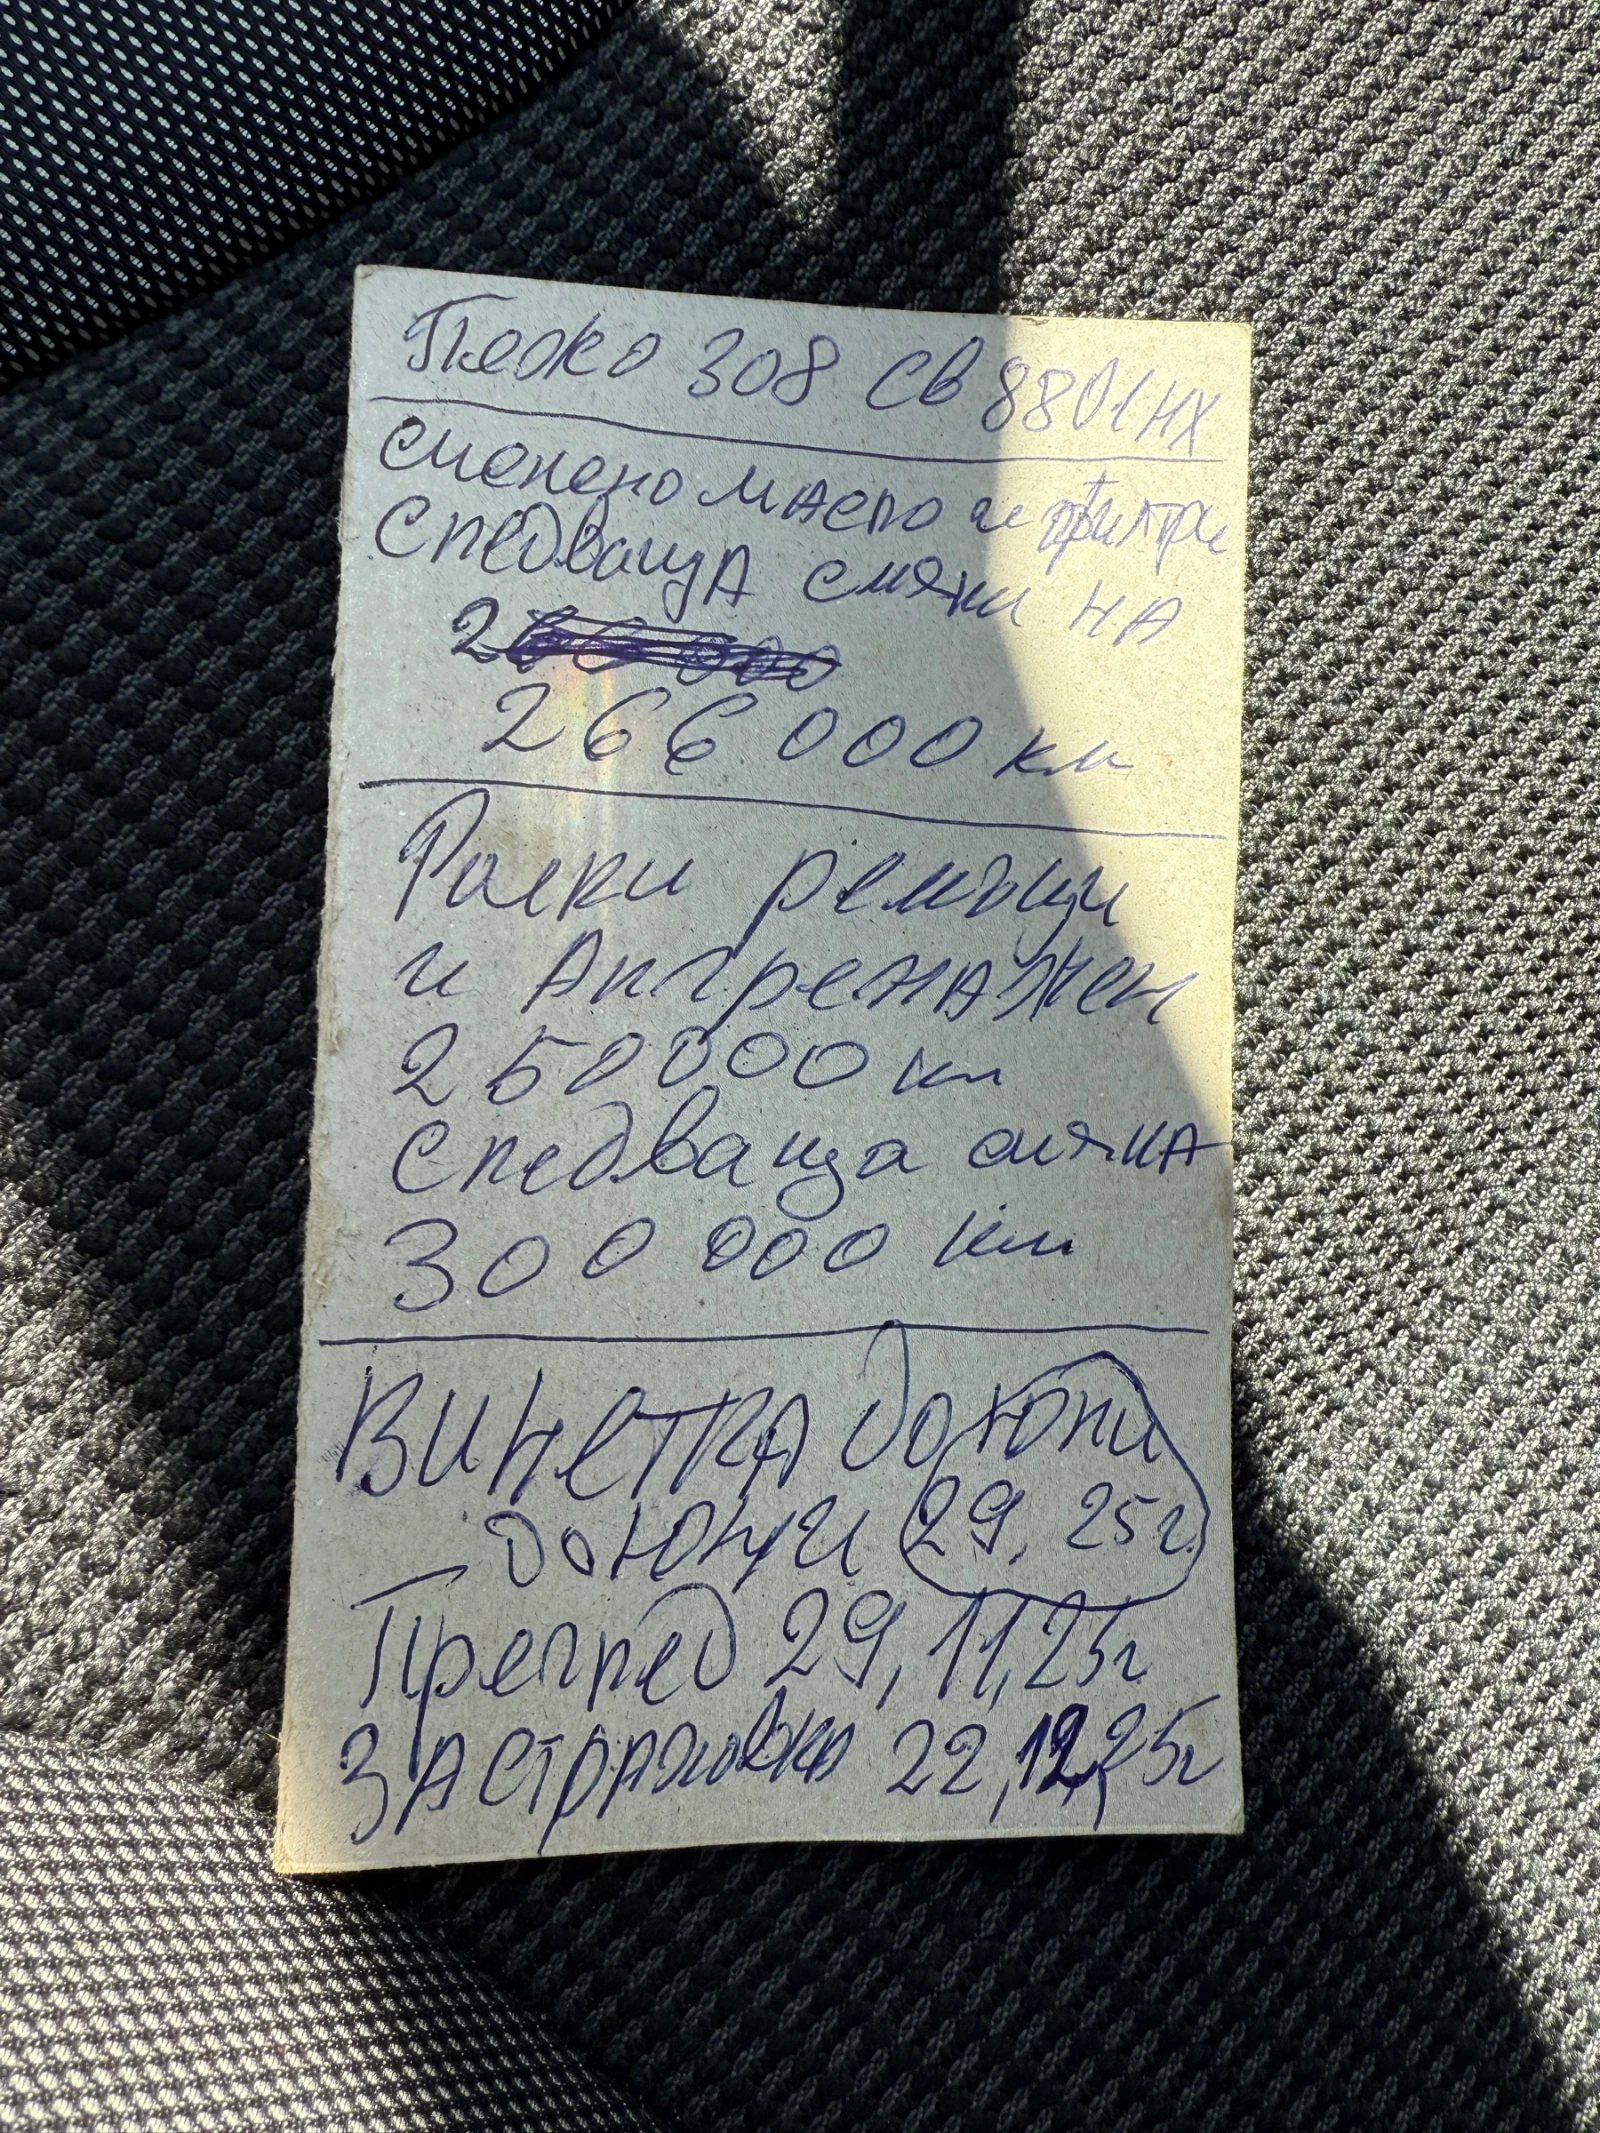 Пежо 308 СВ 8801 НХ
сменено масло и филтри
Следваща смяна НА
266 000 км
Ролки ремъци
и Ангренажен
250 000 км
Следваща смяна
300 000 км
ВИНЕТКА до юни
до юни 29, 25г.
Преглед 29,11,25г
ЗАСТРАХОВКА 22,12,25г